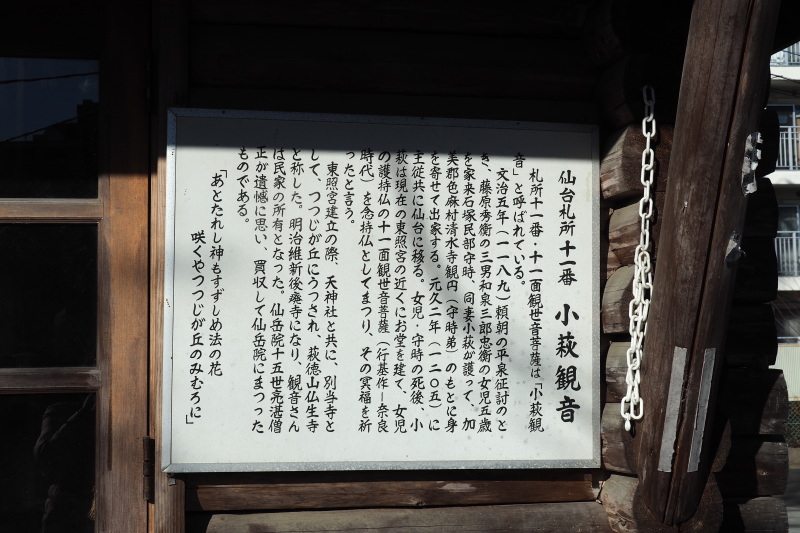 仙台札所十一番　小萩観音
札所十一番・十一面観世音菩薩は「小萩観
音」と呼ばれている。
文治五年（一一八九）頼朝の平泉征討のと
き、藤原秀衡の三男和泉三郎忠衡の女児五歳
を家来石塚民部守時、同妻小萩が護って、加
美郡色麻村清水寺観円（守時弟）のもとに身
を寄せて出家する。元久二年（一二〇五）に
主従共に仙台に移る。女児・守時の死後、小
萩は現在の東照宮の近くにお堂を建て、女児
の護持仏の十一面観世音菩薩（行基作－奈良
時代）を念持仏としてまつり、その冥福を祈
ったと言う。
東照宮建立の際、天神社と共に、別当寺と
して、つつじが丘にうつされ、萩徳山仏生寺
と称した。明治維新後廃寺になり、観音さん
は民家の所有となった。仙岳院十五世亮湛僧
正が遺憾に思い、買収して仙岳院にまつった
ものである。
「あとたれし神もすずしめ法の花
咲くやつつじが丘のみむろに」